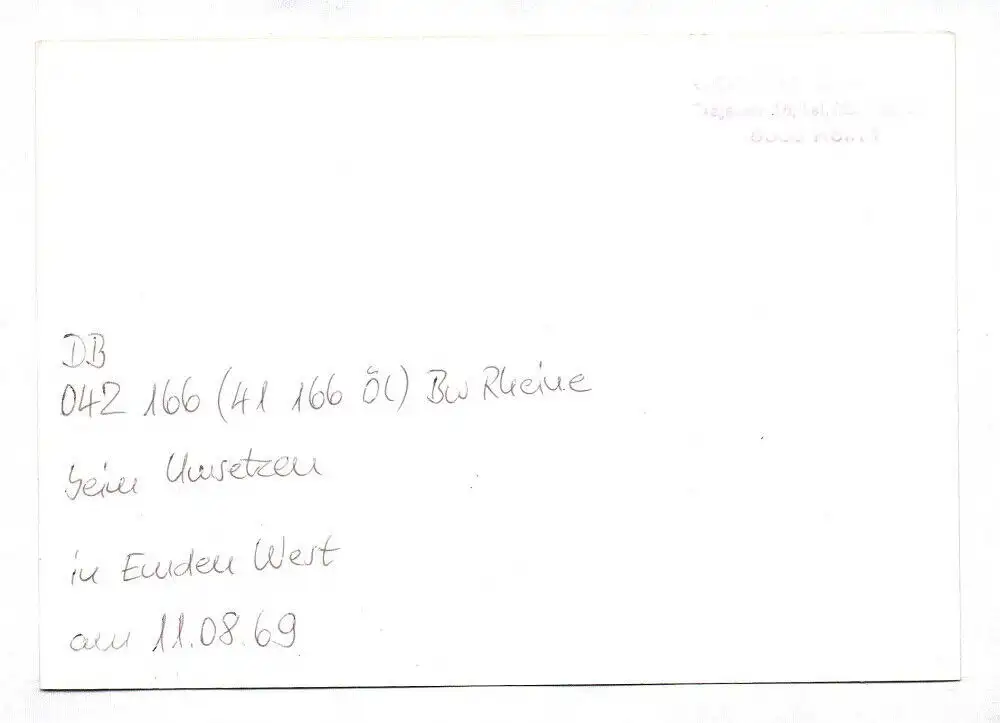 DB
042 166 (41 166 Öl) Bw Rheine
beim Umsetzen
in Emden West
am 11.08.69